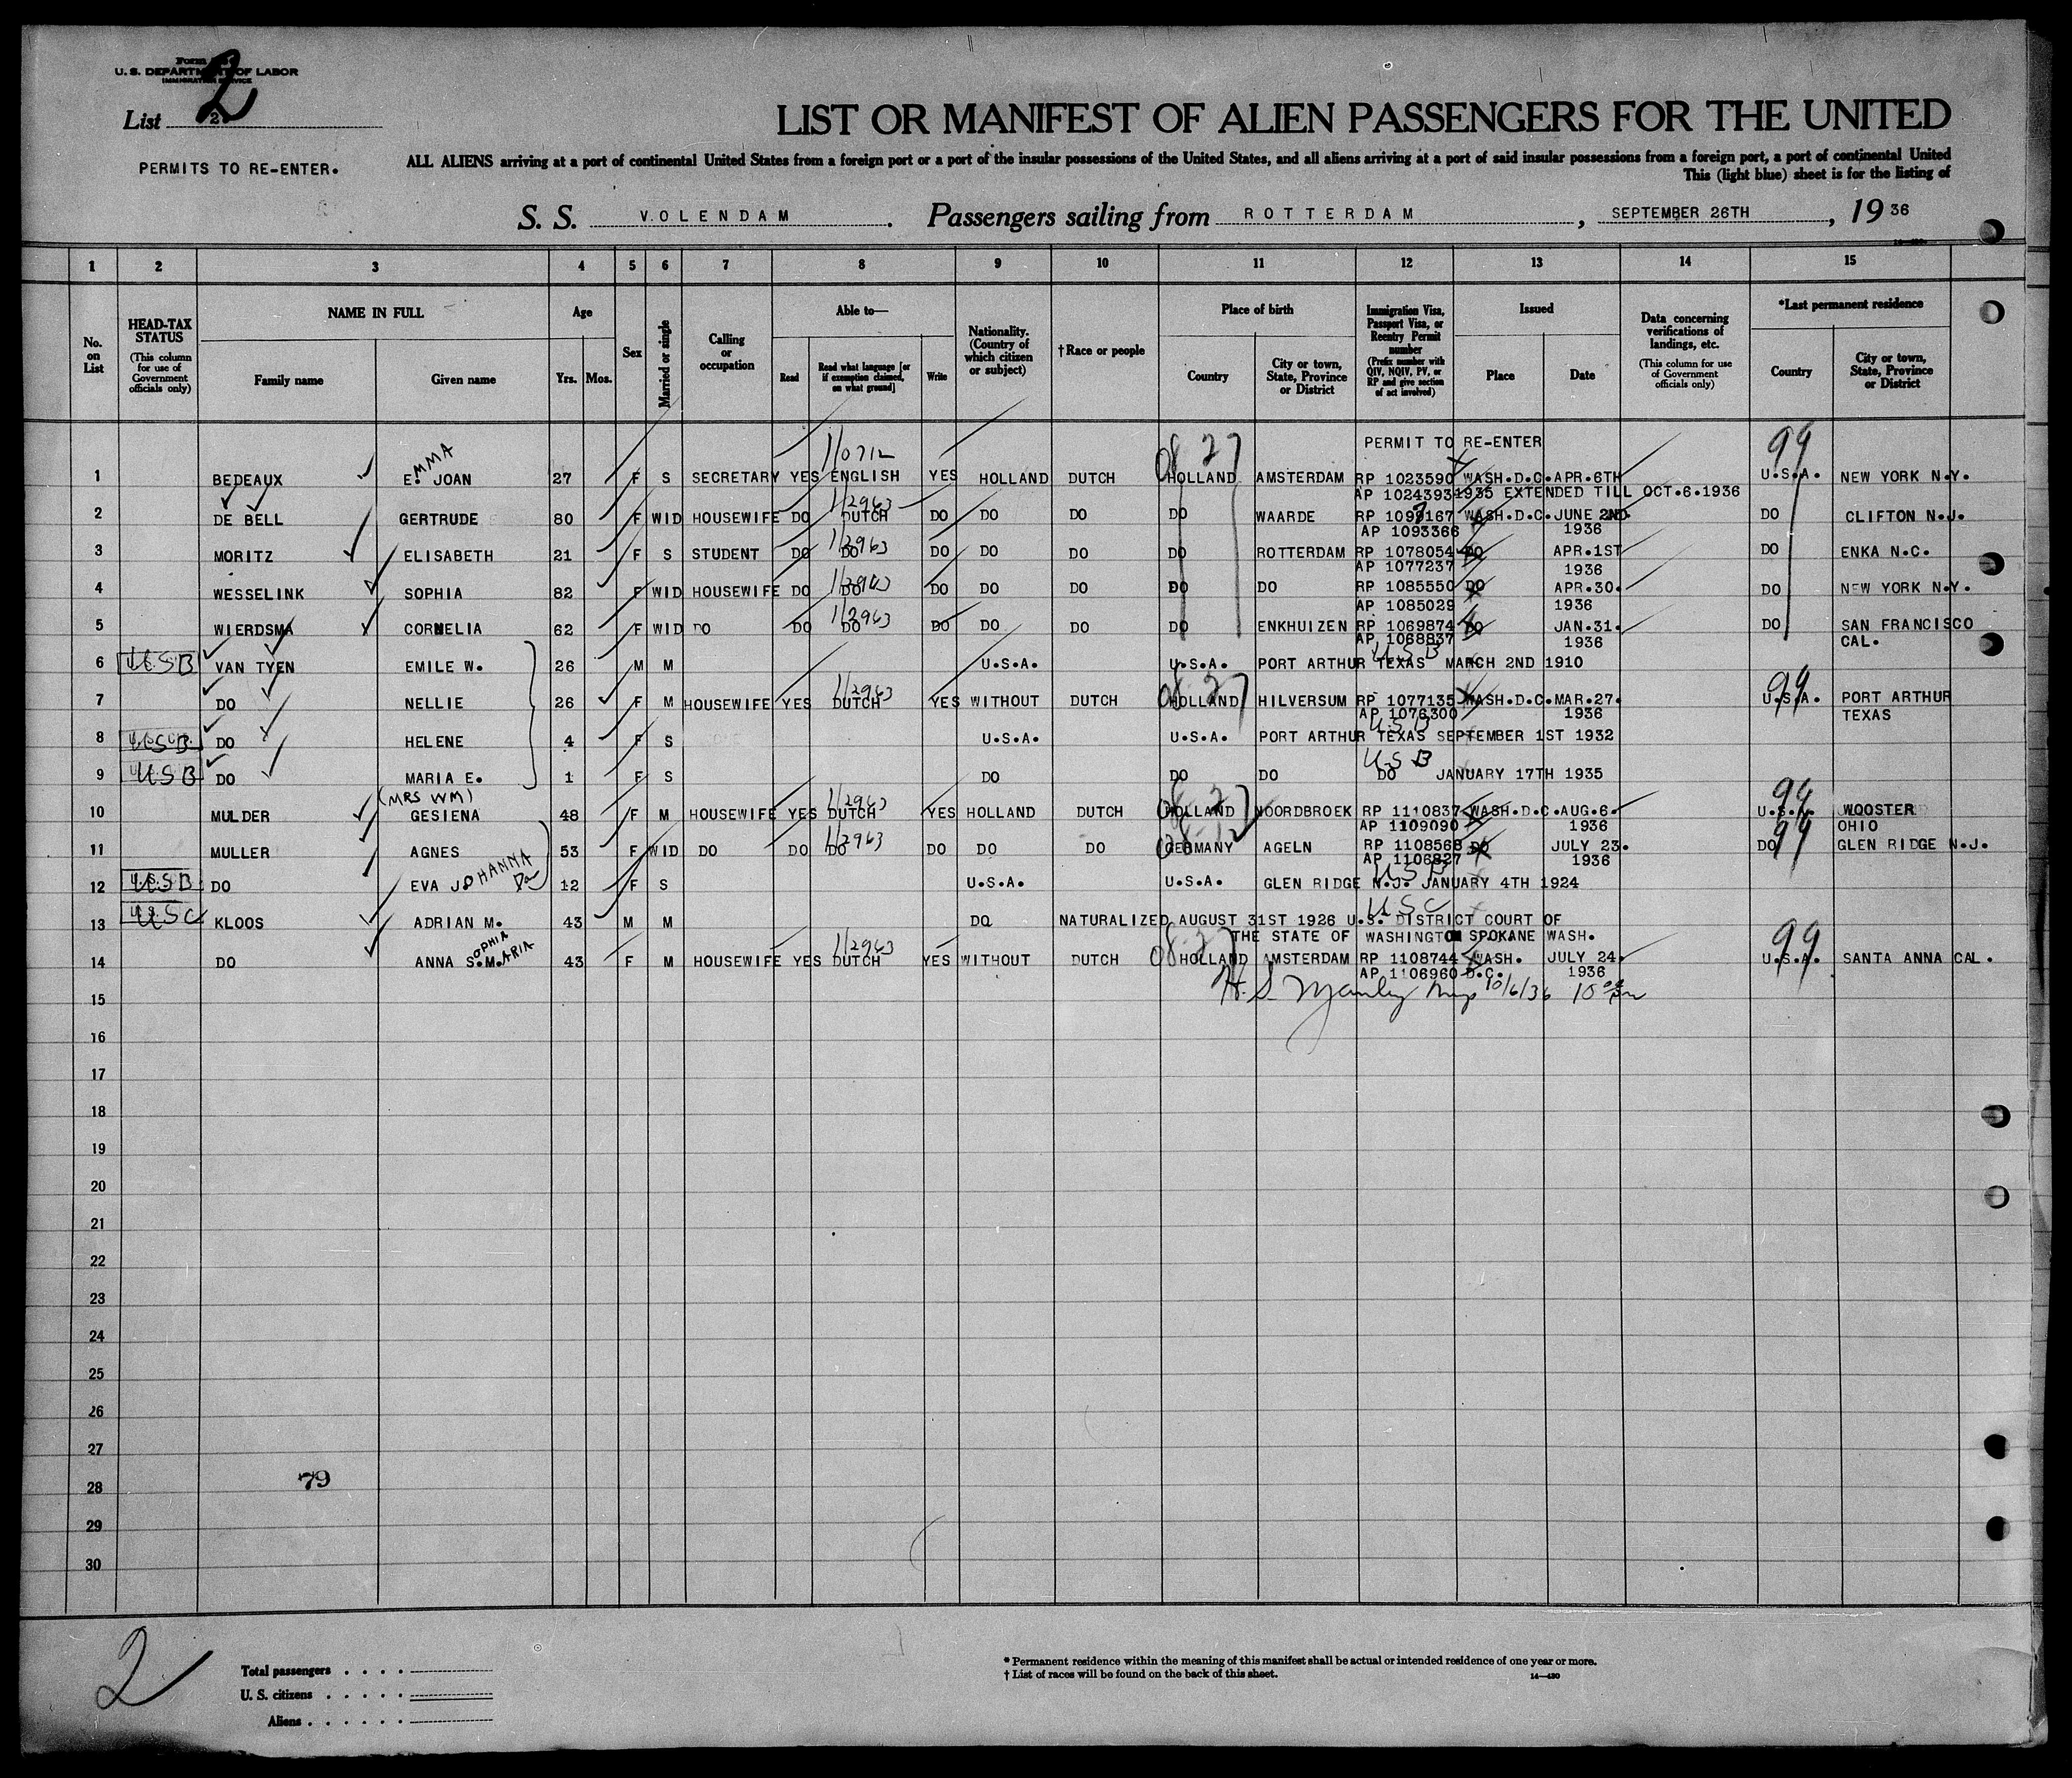 Form
U. S. DEPARTMENT OF LABOR
IMMIGRATION SERVICE
2
List 2
PERMITS TO RE-ENTER.
LIST OR MANIFEST OF ALIEN PASSENGERS FOR THE UNITED
ALL ALIENS arriving at a port of continental United States from a foreign port or a port of the insular possessions of the United States, and all aliens arriving at a port of said insular possessions from a foreign port, a port of continental United
This (light blue) sheet is for the listing of
S. S. VOLENDAM. Passengers sailing from ROTTERDAM, SEPTEMBER 26TH, 1936
1 2 3 4 5 6 7 8 9 10 11 12 13 14 15
No. on List
HEAD-TAX STATUS (This column for use of Government officials only)
NAME IN FULL
Family name Given name
Age
Yrs. Mos.
Sex
Married or single
Calling or occupation
Able to—
Read Read what language [or if exemption claimed, on what ground] Write
Nationality. (Country of which citizen or subject)
†Race or people
Place of birth
Country City or town, State, Province or District
Immigration Visa, Passport Visa, or Reentry Permit number (Prefix number with QIV, NQIV, PV, or RP and give section of act involved)
Issued
Place Date
Data concerning verifications of landings, etc. (This column for use of Government officials only)
*Last permanent residence
Country City or town, State, Province or District
PERMIT TO RE-ENTER
EMMA 110712 08 27 99
1 BEDEAUX E. JOAN 27 F S SECRETARY YES ENGLISH YES HOLLAND DUTCH HOLLAND AMSTERDAM RP 1023590 WASH.D.C. APR.6TH U.S.A. NEW YORK N.Y.
AP 1024393 1935 EXTENDED TILL OCT.6.1936
112963
2 DE BELL GERTRUDE 80 F WID HOUSEWIFE DO DUTCH DO DO DO DO WAARDE RP 1099167 WASH.D.C. JUNE 2ND. DO CLIFTON N.J.
AP 1093366 1936
112963
3 MORITZ ELISABETH 21 F S STUDENT DO DO DO DO DO DO ROTTERDAM RP 1078054 DO APR.1ST DO ENKA N.C.
AP 1077237 1936
112963
4 WESSELINK SOPHIA 82 F WID HOUSEWIFE DO DO DO DO DO DO DO RP 1085550 DO APR.30. DO NEW YORK N.Y.
AP 1085029 1936
112963
5 WIERDSMA CORNELIA 62 F WID DO DO DO DO DO DO DO ENKHUIZEN RP 1069874 DO JAN.31. DO SAN FRANCISCO
AP 1068837 1936 CAL.
USB
6 USB VAN TYEN EMILE W. 26 M M U.S.A. U.S.A. PORT ARTHUR TEXAS MARCH 2ND 1910
112963 08 27 99
7 DO NELLIE 26 F M HOUSEWIFE YES DUTCH YES WITHOUT DUTCH HOLLAND HILVERSUM RP 1077135 WASH.D.C. MAR.27. U.S.A. PORT ARTHUR
AP 1076300 1936 TEXAS
USB
8 USB DO HELENE 4 F S U.S.A. U.S.A. PORT ARTHUR TEXAS SEPTEMBER 1ST 1932
USB
9 USB DO MARIA E. 1 F S DO DO DO DO JANUARY 17TH 1935
(MRS WM) 112963 08-27 99
10 MULDER GESIENA 48 F M HOUSEWIFE YES DUTCH YES HOLLAND DUTCH HOLLAND NOORDBROEK RP 1110837 WASH.D.C. AUG.6. U.S.A. WOOSTER
AP 1109090 1936 OHIO
112963 99
11 MULLER AGNES 53 F WID DO DO DO DO DO DO GERMANY AGELN RP 1108568 DO JULY 23. DO GLEN RIDGE N.J.
AP 1106827 1936
USB
12 USB DO EVA JOHANNA Da 12 F S U.S.A. U.S.A. GLEN RIDGE N.J. JANUARY 4TH 1924
USC
13 USC KLOOS ADRIAN M. 43 M M DO NATURALIZED AUGUST 31ST 1926 U.S. DISTRICT COURT OF
THE STATE OF WASHINGTON SPOKANE WASH.
OPHIA ARIA 112963 08-27 99
14 DO ANNA S.M. 43 F M HOUSEWIFE YES DUTCH YES WITHOUT DUTCH HOLLAND AMSTERDAM RP 1108744 WASH. JULY 24. U.S.A. SANTA ANNA CAL.
AP 1106960 D.C. 1936
H. S. Manley Insp 10/6/36
15
16
17
18
19
20
21
22
23
24
25
26
27
79
28
29
30
2
Total passengers
U. S. citizens
Aliens
* Permanent residence within the meaning of this manifest shall be actual or intended residence of one year or more.
† List of races will be found on the back of this sheet. 14—430